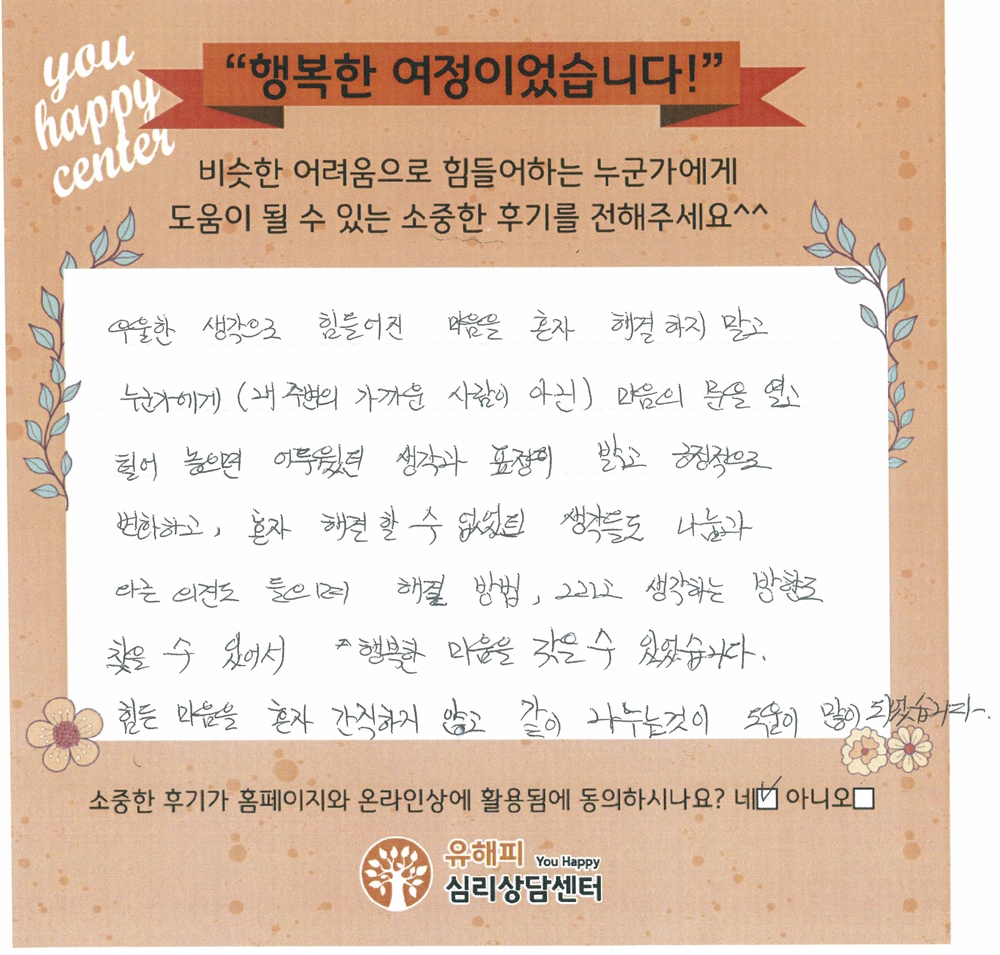 you
happy
center
“행복한 여정이었습니다!”
비슷한 어려움으로 힘들어하는 누군가에게
도움이 될 수 있는 소중한 후기를 전해주세요^^
우울한 생각으로 힘들어진 마음을 혼자 해결하지 말고
누군가에게 (내 주변의 가까운 사람이 아닌) 마음의 문을 열고
털어 놓으면 어두웠던 생각과 표정이 밝고 긍정적으로
변화하고, 혼자 해결할 수 없었던 생각들도 나눔과
다른 의견도 들으며 해결 방법, 그리고 생각하는 방향도
찾을 수 있어서 행복한 마음을 갖을 수 있었습니다.
힘든 마음을 혼자 간직하지 않고 같이 나누는것이 도움이 많이 되었습니다~.
소중한 후기가 홈페이지와 온라인상에 활용됨에 동의하시나요? 네☑ 아니오☐
유해피 You Happy
심리상담센터